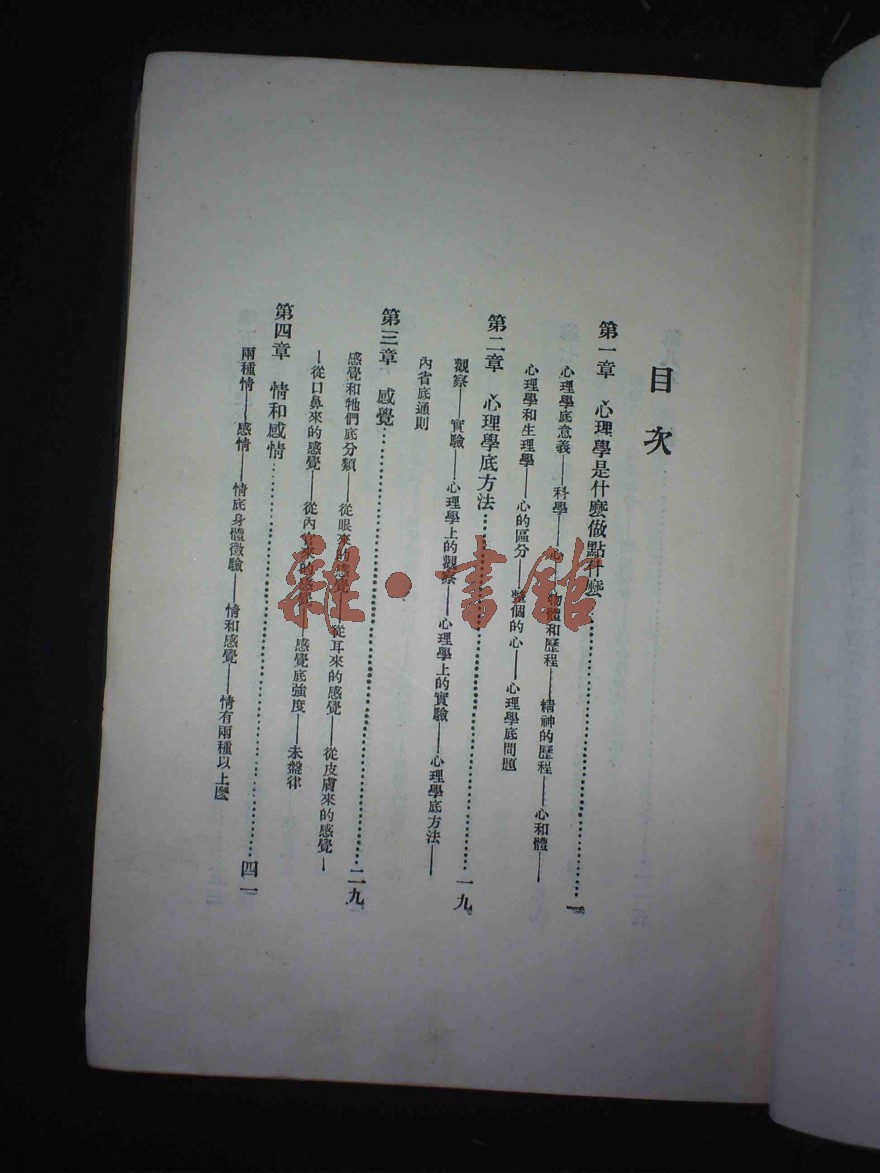 目次
第一章　心理學是什麽做點什麽……一
心理學底意義——科學——心——物體和歷程——精神的歷程——心和體——
心理學和生理學——心的區分——整個的心——心理學底問題
第二章　心理學底方法……一九
觀察——實驗——心理學上的觀察——心理學上的實驗——心理學底方法——
內省底通則
第三章　感覺……二九
感覺和牠們底分類——從眼來的感覺——從耳來的感覺——從皮膚來的感覺—
—從口鼻來的感覺——從內官來的感覺——感覺底強度——未盤律
第四章　情和感情……四一
兩種情——感情——情底身體徵驗——情和感覺——情有兩種以上麽
雜·書館